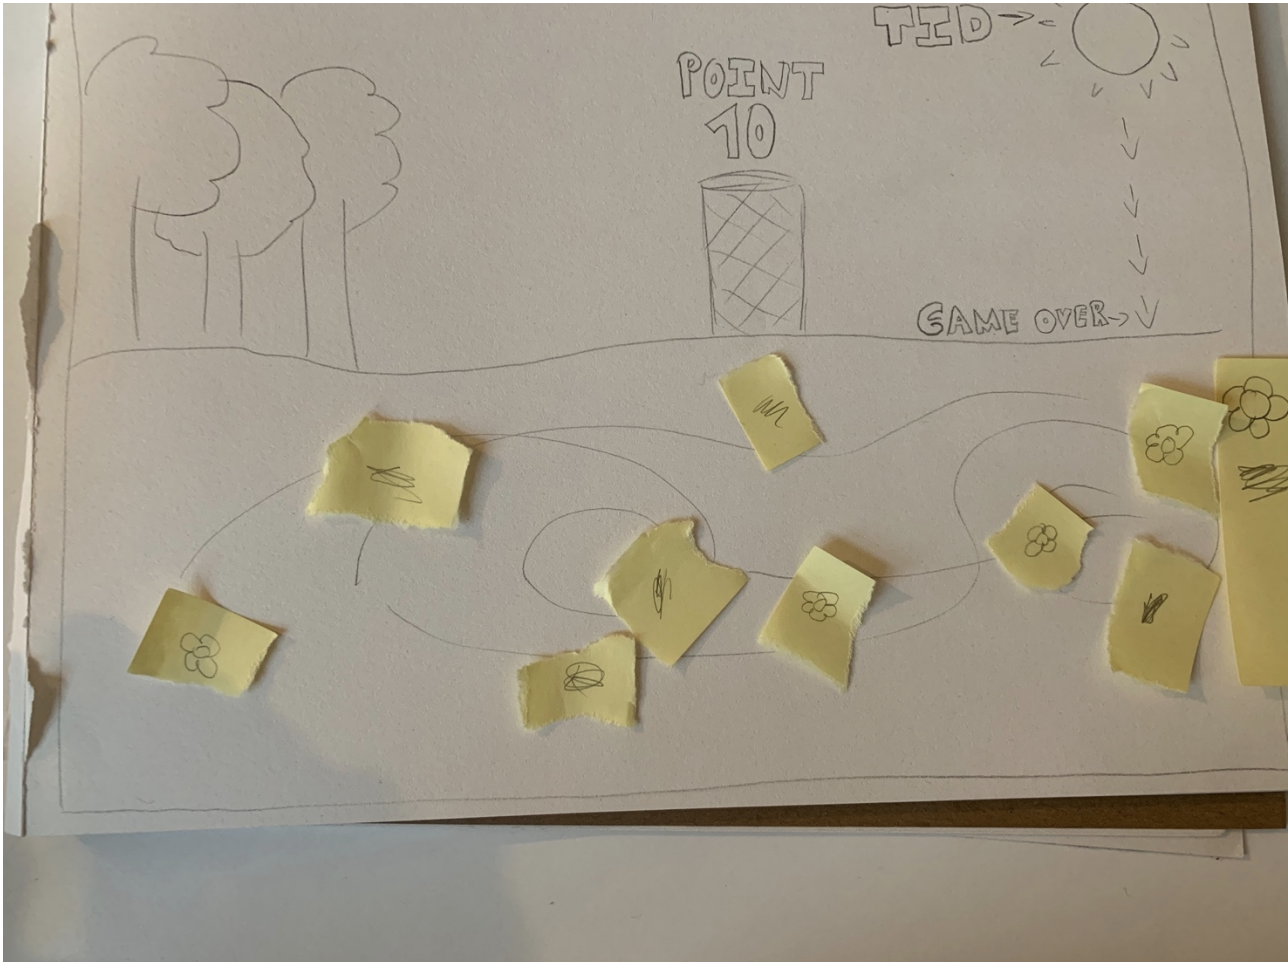 TID
POINT
10
GAME OVER